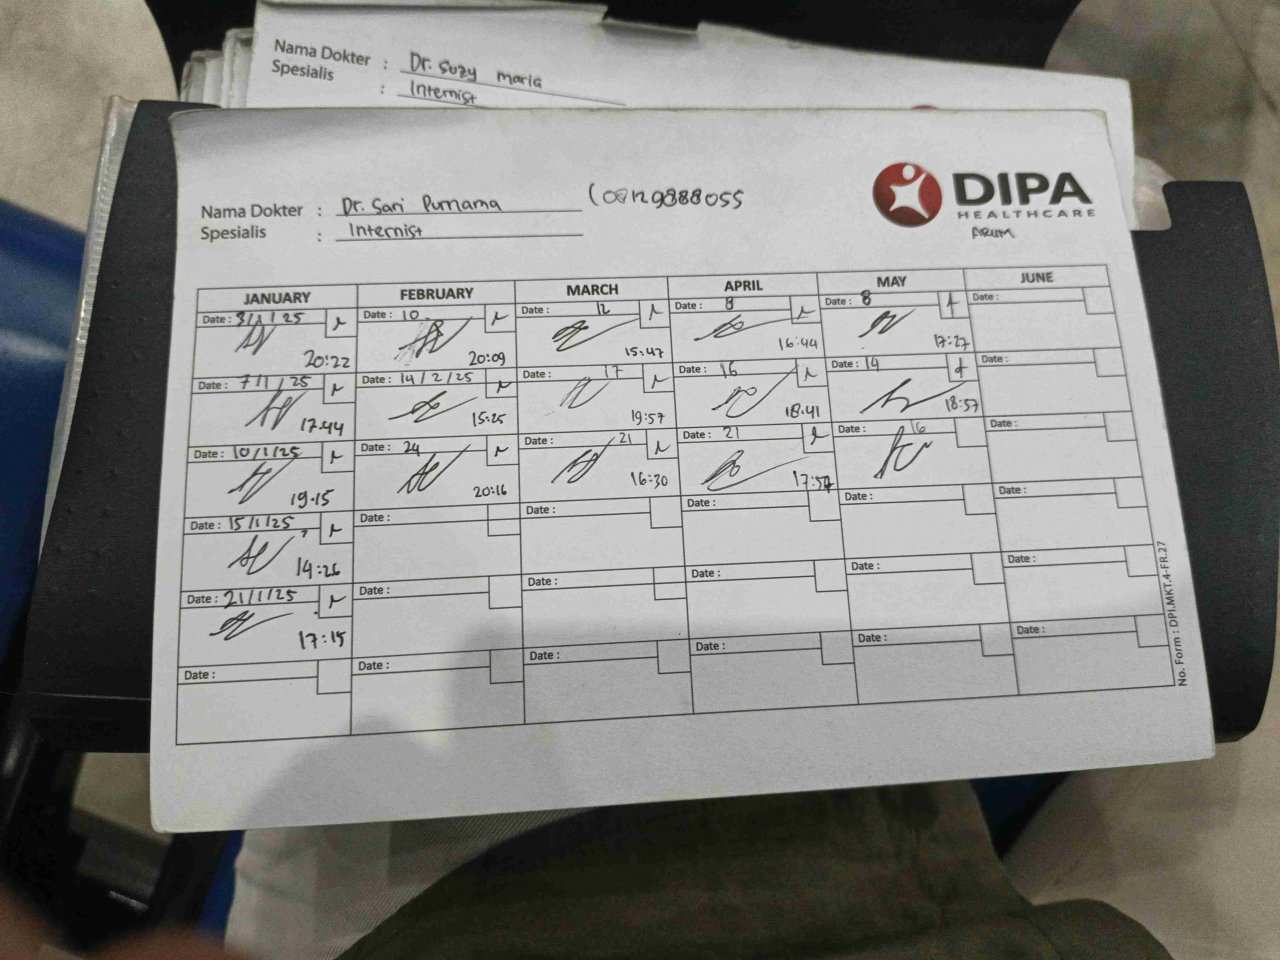 Nama Dokter : Dr. Suzy maria
Spesialis : Internist
DIPA
HEALTHCARE
Nama Dokter : Dr. Sari Purnama (08129888055
Spesialis : Internist
JANUARY FEBRUARY MARCH APRIL MAY JUNE
Date : 3/1/25 Date : 10 Date : 12 Date : 8 Date : 8 Date :
20:22 20:09 15:47 16:44 17:27
Date : 7/1/25 Date : 14/2/25 Date : 17 Date : 16 Date : 14 Date :
17:44 15:25 19:57 18:41 18:57
Date : 10/1/25 Date : 24 Date : 21 Date : 21 Date : 16 Date :
19:15 20:16 16:30 17:57
Date : 15/1/25 Date : Date : Date : Date : Date :
14:26
Date : 21/1/25 Date : Date : Date : Date : Date :
17:15
Date : Date : Date : Date : Date : Date :
No. Form : DPI.MKT.4-FR.27